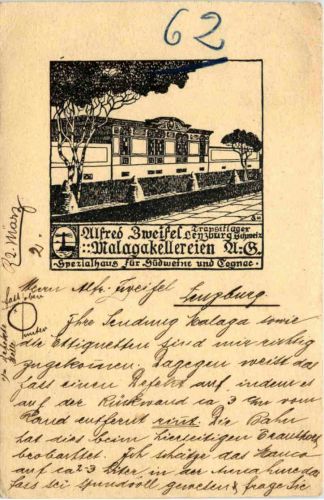 62
Alfred Zweifel Transitlager
Lenzburg Schweiz
::Malagakellereien A:G.
Spezialhaus für Südweine und Cognac
22. März
Herrn Alfr. Zweifel
Lenzburg.
Ihre Sendung Malaga sowie
die Ettiquetten sind mir richtig
zugekommen. Dagegen weist das
Fass einen Defekt auf, indem es
auf der Rückwand ca 3 cm vom
Rand entfernt rinnt. Die Bahn
hat dies beim hierseitigen
beobachtet. Ich schätze das Manco
auf ca 2-3 Liter in der Annahme das
Fass sei spundvoll gewesen & frage Sie